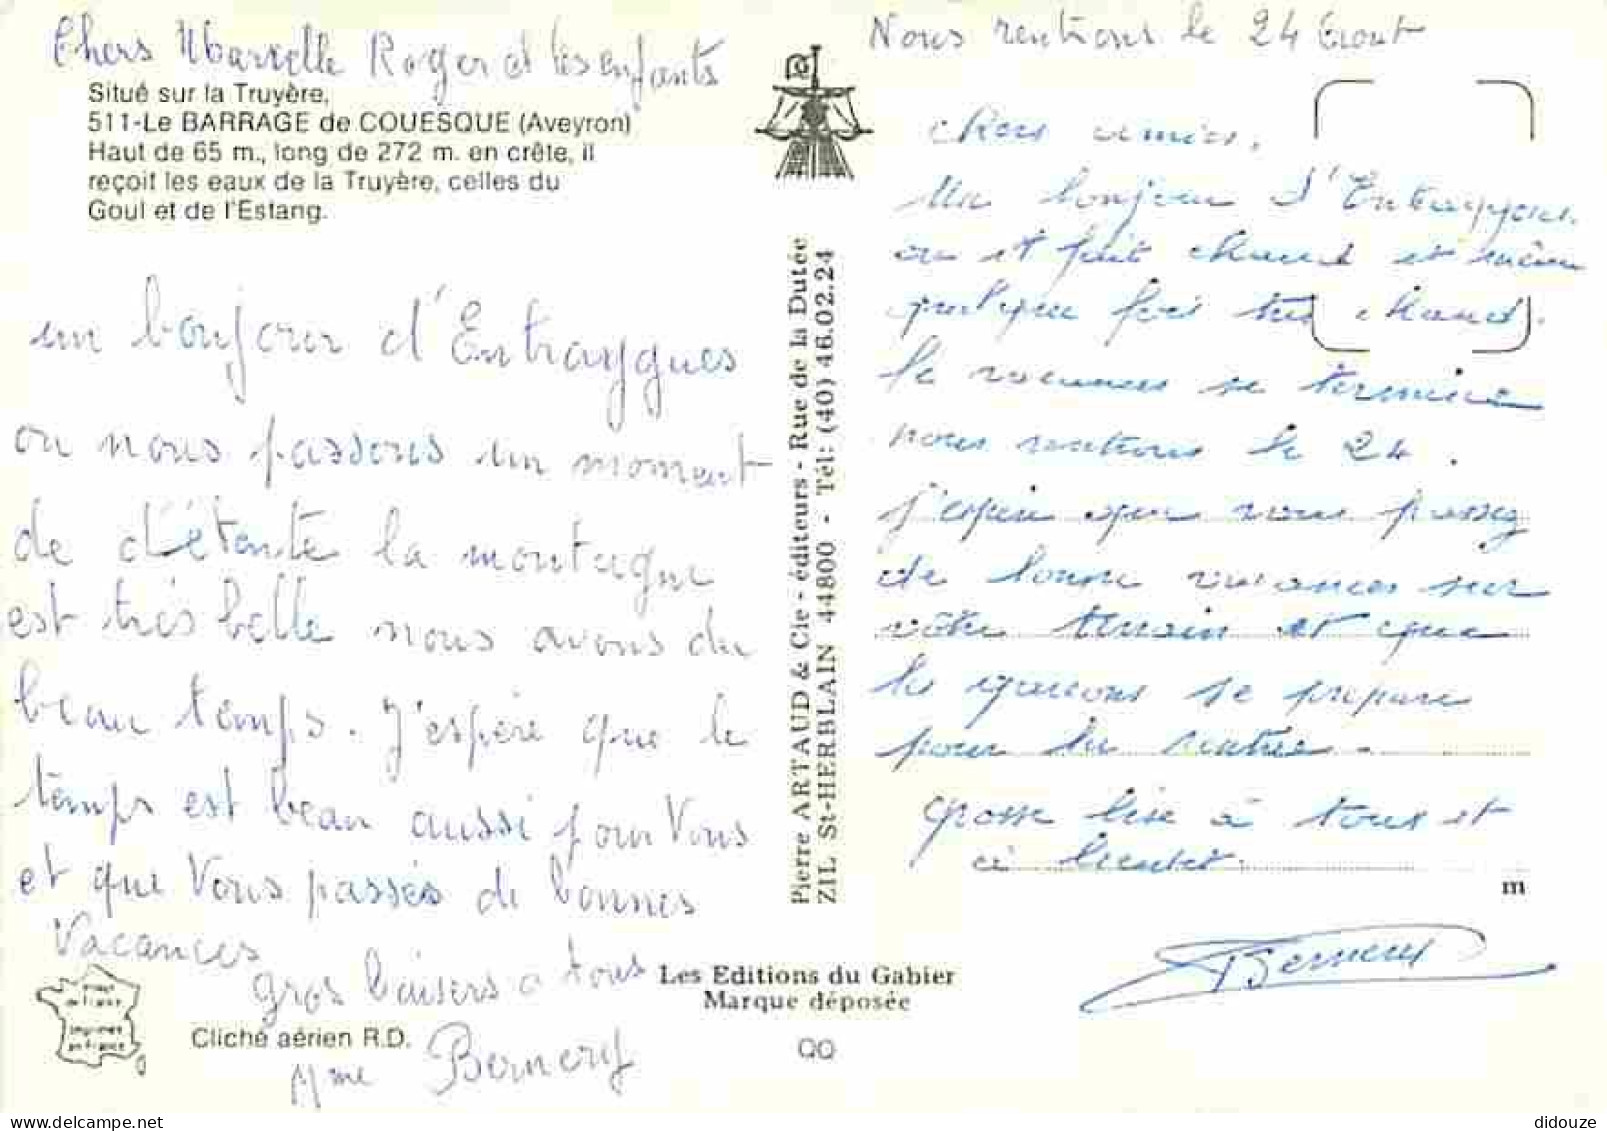 Chers Marcelle Roger et les enfants
Situé sur la Truyère,
511-Le BARRAGE de COUESQUE (Aveyron)
Haut de 65 m., long de 272 m. en crête, il
reçoit les eaux de la Truyère, celles du
Goul et de l'Estang.
un bonjour d'Entraygues
ou nous passons un moment
de détente la montagne
est très belle nous avons du
beau temps. J'espère que le
temps est beau aussi pour Vous
et que Vous passés de bonnes
Vacances
gros baisers a tous
Mme Bernery
Cliché aérien R.D.
imprimé
en France
Pierre ARTAUD & Cie - éditeurs - Rue de la Dutée
ZIL St-HERBLAIN 44800 - Tél: (40) 46.02.24
Les Editions du Gabier
Marque déposée
Nous rentrons le 24 Aout
chers amis,
Un bonjour d'Entraygues.
ou il fait chaud et même
quelque fois très chaud.
le vacances se termine
nous rentrons le 24.
j'espère que vous passez
de bonne vacances sur
vôtre terrain et que
les garçons se prépare
pour la rentrée.
grosse bise à tous et
à bientot
m
Bernery
delcampe.net
didouze